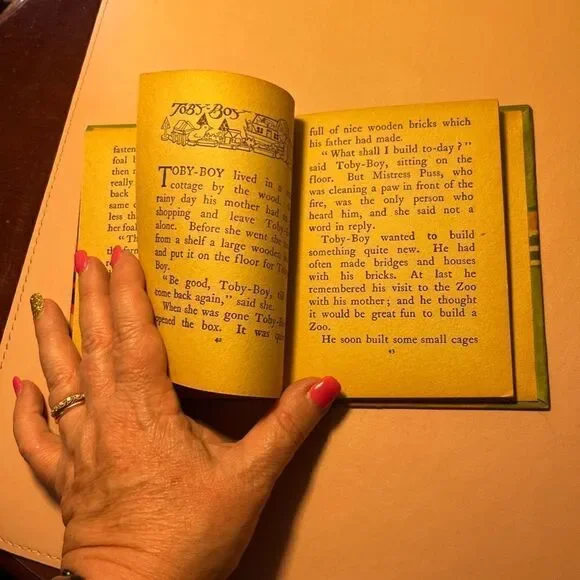 fasten
foal b
then
really
back
same c
less tha
her foal
"Th
TOBY-BOY
TOBY-BOY lived in a
cottage by the wood.
rainy day his mother had
shopping and leave Toby-
alone. Before she went she
from a shelf a large wooden
and put it on the floor for
Boy.
"Be good, Toby-Boy,
come back again," said she.
When she was gone Toby-
opened the box. It was
42
full of nice wooden bricks which
his father had made.
"What shall I build to-day?"
said Toby-Boy, sitting on the
floor. But Mistress Puss, who
was cleaning a paw in front of the
fire, was the only person who
heard him, and she said not a
word in reply.
Toby-Boy wanted to build
something quite new. He had
often made bridges and houses
with his bricks. At last he
remembered his visit to the Zoo
with his mother; and he thought
it would be great fun to build a
Zoo.
He soon built some small cages
43